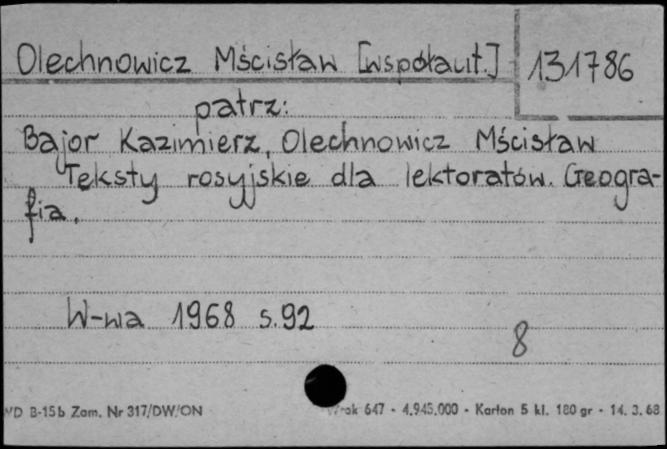 Olechnowicz Mścisław [współaut.] 131786
patrz:
Bajor Kazimierz, Olechnowicz Mścisław
Teksty rosyjskie dla lektoratów. Geogra-
fia.
W-wa 1968 s.92
8
B-15b Zam. Nr 317/DW/ON 647 - 4.945.000 - Karton 5 kl. 180 gr - 14. 3. 68